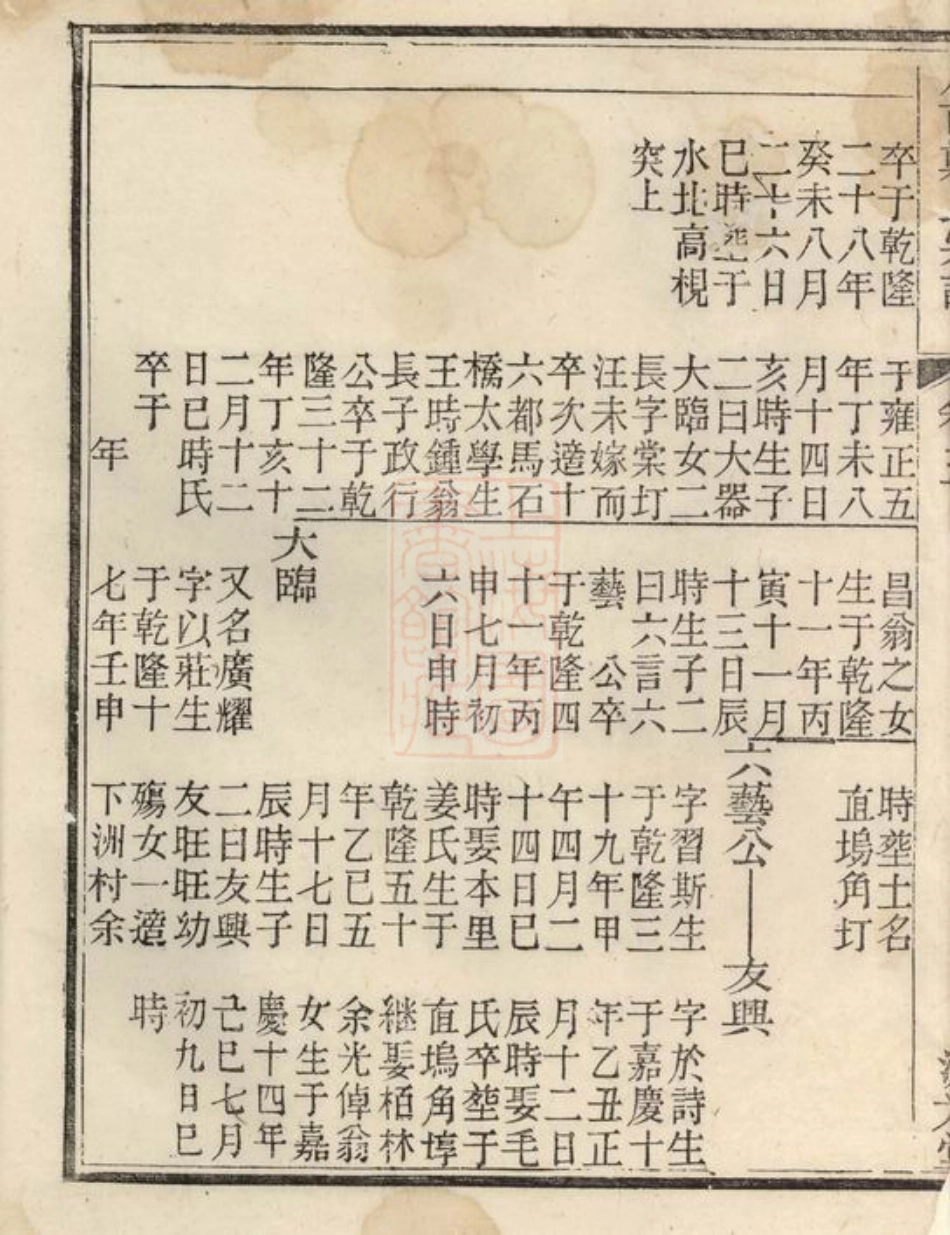 卒于乾隆
二十八年
癸未八月
二十六日
巳時塟于
水北高梘
突上
于雍正五
年丁未八
月十四日
亥時生子
二曰大器
大臨女二
長字棠圢
汪未嫁而
卒次適十
六都馬石
橋太學生
王時鍾翁
長子政行
公卒于乾
隆三十二
年丁亥十
二月十二
日巳時氏
卒于
年
昌翁之女
生于乾隆
十一年丙
寅十一月
十三日辰
時生子二
曰六言六
藝 公卒
于乾隆四
十一年丙
申七月初
六日申時
大臨
又名廣耀
字以莊生
于乾隆十
七年壬申
時塟土名
直塢角圢
六藝公
字習斯生
于乾隆三
十九年甲
午四月二
十四日巳
時娶本里
姜氏生于
乾隆五十
年乙巳五
月十七日
辰時生子
二曰友興
友旺旺幼
殤女一適
下洲村余
友興
字於詩生
于嘉慶十
年乙丑正
月十二日
辰時娶毛
氏卒塟于
直塢角埻
継娶栢林
余光倬翁
女生于嘉
慶十四年
己巳七月
初九日巳
時